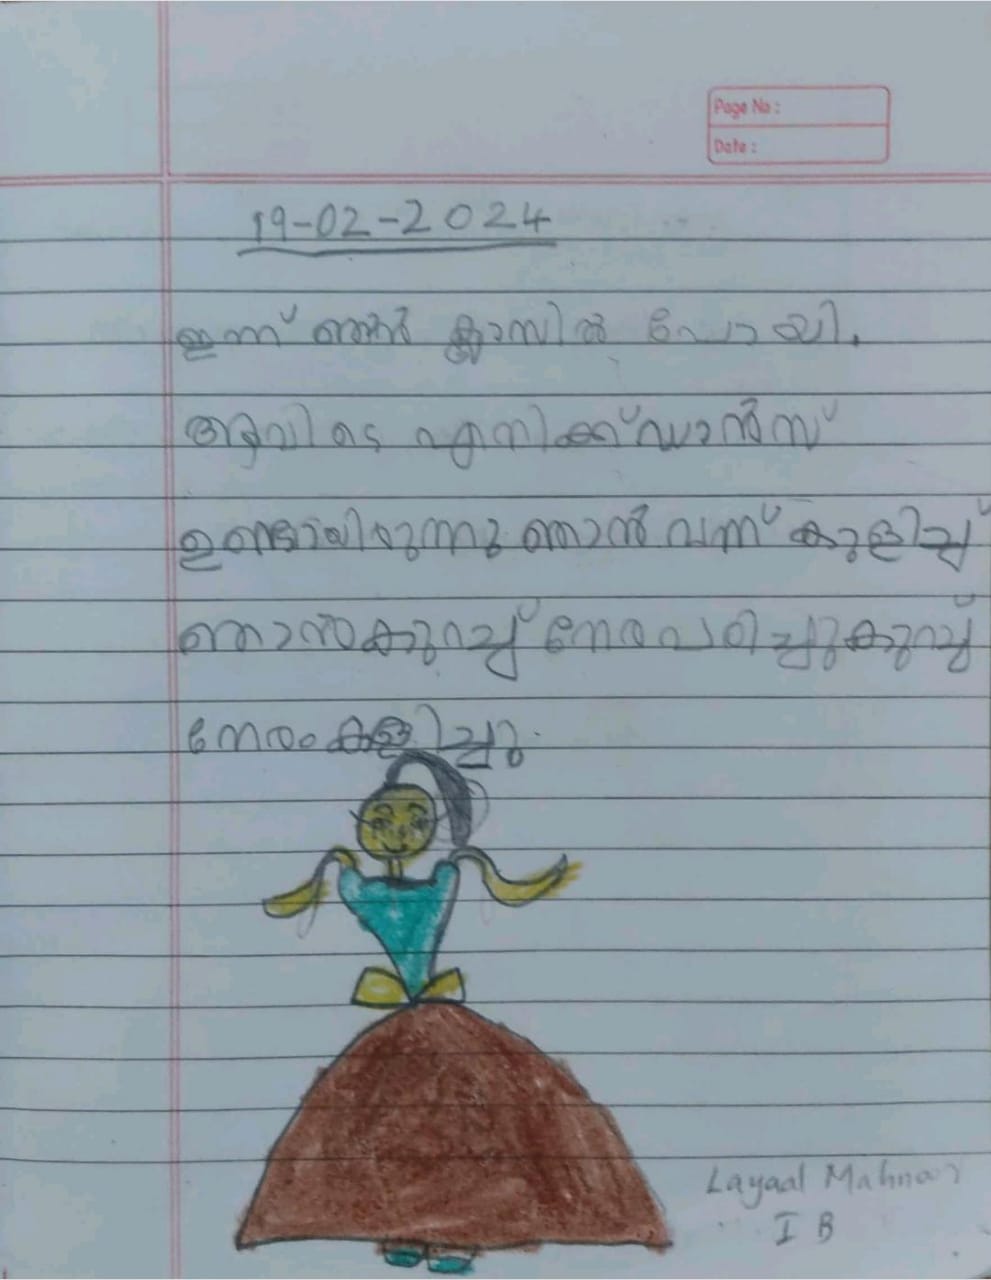 Page No :
Date :
19-02-2024
ഇന്ന് ഞാൻ ക്ലാസിൽ പോയി.
അവിടെ എനിക്ക് ഡാൻസ്
ഉണ്ടായിരുന്നു ഞാൻ വന്ന് കുളിച്ച്
ഞാൻ കുറച്ച് നേരം പഠിച്ചു കുറച്ച്
നേരം കളിച്ചു.
Layaal Mahnoor
I B